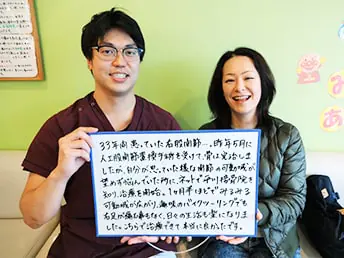 33年間患っていた右股関節…。昨年5月に
人工股関節置換手術を受けて、骨は完治しま
したが、自分が思っていた様な関節の可動域が
望めず悩んでいた所に、ネットで中川接骨院を
知り、治療を開始。1ヶ月半ほどでみるみる
可動域が広がり、趣味のバイクツーリングでも
右足が痛む事もなく、日々の生活も楽になりま
した。こちらで治療できて本当に良かったです。
み
あ